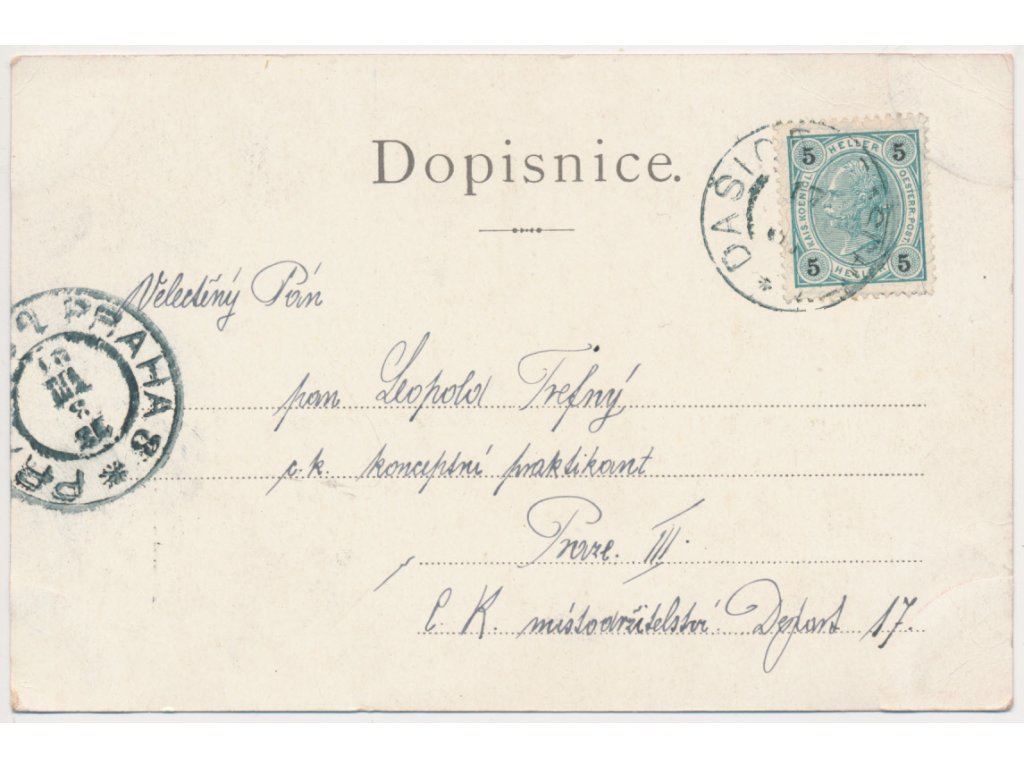 Dopisnice.
5 HELLER 5
KAIS. KOENIGL.
OESTERR. POST.
5 HELLER 5
DAŠIC
Velectěný Pán
pan Leopold Trefný
c. k. konceptní praktikant
v Praze. III.
C. K. místodržitelství. Depart 17.
PRAHA 3